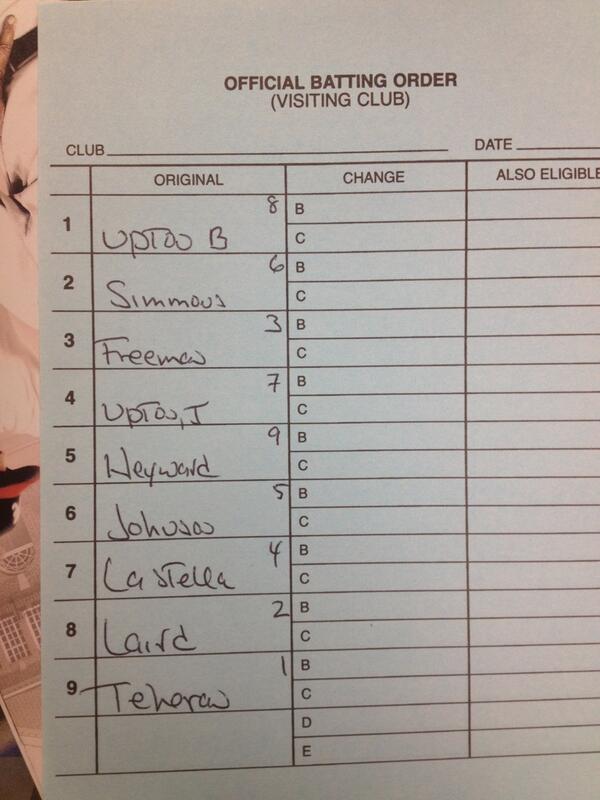 OFFICIAL BATTING ORDER
(VISITING CLUB)
CLUB DATE
ORIGINAL CHANGE ALSO ELIGIBLE
1 Upton B 8 B
C
2 Simmons 6 B
C
3 Freeman 3 B
C
4 Upton, J 7 B
C
5 Heyward 9 B
C
6 Johnson 5 B
C
7 La Stella 4 B
C
8 Laird 2 B
C
9 Teheran 1 B
C
D
E